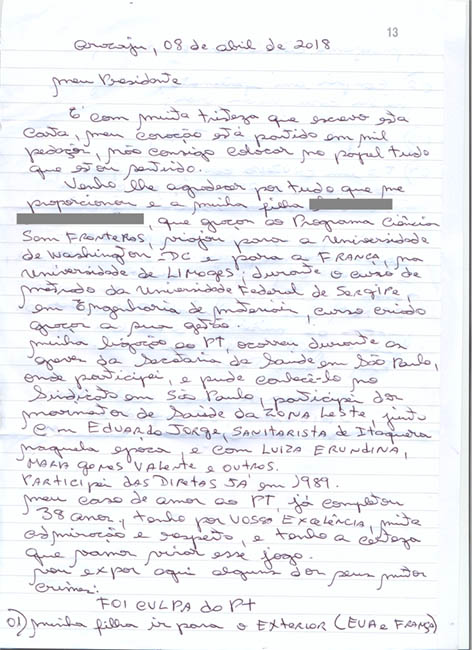 13
Aracaju, 08 de abril de 2018
Meu Presidente
É com muita tristeza que escrevo esta
carta, meu coração está partido em mil
pedaços, não consigo colocar no papel tudo
que estou sentindo.
Venho lhe agradecer por tudo que me
proporcionou e a minha filha
, que graças ao Programa Ciências
Sem FRONTEIRAS, viajou para a Universidade
de Washington DC e para a FRANÇA, na
Universidade de LIMOGES, durante o curso de
mestrado da Universidade Federal de Sergipe,
em Engenharia de materiais, curso criado
graças a sua gestão.
Minha ligação ao PT, ocorreu durante as
greves da Secretaria da Saúde em São Paulo,
onde participei, e pude conhecê-lo no
Sindicato em São Paulo, participei dos
movimentos de Saúde da ZONA LESTE, junto
com EDUARDO JORGE, SANITARISTA de Itaquera
naquela época e com LUIZA ERUNDINA,
MARIA GOMES VALENTE e OUTROS.
PARTICIPEI DAS DIRETAS JÁ em 1989.
Meu caso de amor ao PT, já completou
38 anos, tenho por VOSSA EXCELÊNCIA, muita
admiração e respeito, e tenho a certeza
que vamos virar esse jogo.
Vou expor aqui alguns dos seus muitos
crimes:
FOI CULPA do PT
01) minha filha ir para o EXTERIOR (EUA e FRANÇA)